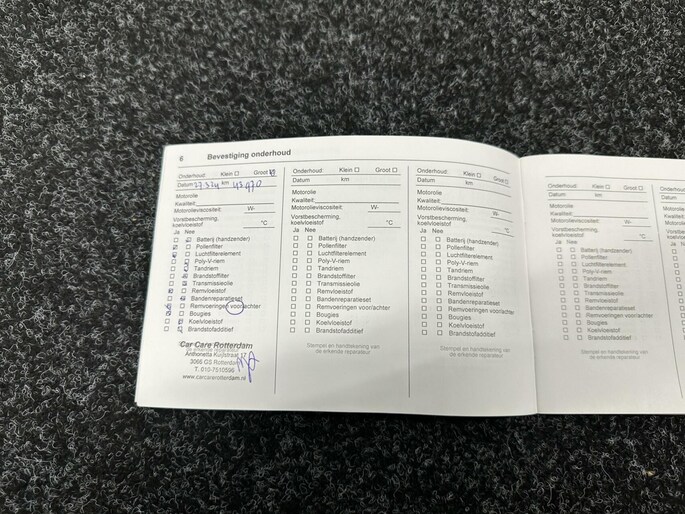 6 Bevestiging onderhoud
Onderhoud: Klein Groot
Datum km 45.970
Motorolie
Kwaliteit:
Motorolieviscositeit: W-
Vorstbescherming, °C
koelvloeistof
Ja Nee
Batterij (handzender)
Pollenfilter
Luchtfilterelement
Poly-V-riem
Tandriem
Brandstoffilter
Transmissieolie
Remvloeistof
Bandenreparatieset
Remvoeringen voor/achter
Bougies
Koelvloeistof
Brandstofadditief
Car Care Rotterdam
de erkende reparateur
Anthonetta Kuijlstraat 17
3066 GS Rotterdam
T. 010-7510596
www.carcarerotterdam.nl
Onderhoud: Klein Groot
Datum km
Motorolie
Kwaliteit:
Motorolieviscositeit: W-
Vorstbescherming, °C
koelvloeistof
Ja Nee
Batterij (handzender)
Pollenfilter
Luchtfilterelement
Poly-V-riem
Tandriem
Brandstoffilter
Transmissieolie
Remvloeistof
Bandenreparatieset
Remvoeringen voor/achter
Bougies
Koelvloeistof
Brandstofadditief
Stempel en handtekening van
de erkende reparateur
Onderhoud: Klein Groot
Datum km
Motorolie
Kwaliteit:
Motorolieviscositeit: W-
Vorstbescherming, °C
koelvloeistof
Ja Nee
Batterij (handzender)
Pollenfilter
Luchtfilterelement
Poly-V-riem
Tandriem
Brandstoffilter
Transmissieolie
Remvloeistof
Bandenreparatieset
Remvoeringen voor/achter
Bougies
Koelvloeistof
Brandstofadditief
Stempel en handtekening van
de erkende reparateur
Onderhoud: Klein Groot
Datum km
Motorolie
Kwaliteit:
Motorolieviscositeit: W-
Vorstbescherming, °C
koelvloeistof
Ja Nee
Batterij (handzender)
Pollenfilter
Luchtfilterelement
Poly-V-riem
Tandriem
Brandstoffilter
Transmissieolie
Remvloeistof
Bandenreparatieset
Remvoeringen voor/achter
Bougies
Koelvloeistof
Brandstofadditief
Stempel en handtekening van
de erkende reparateur